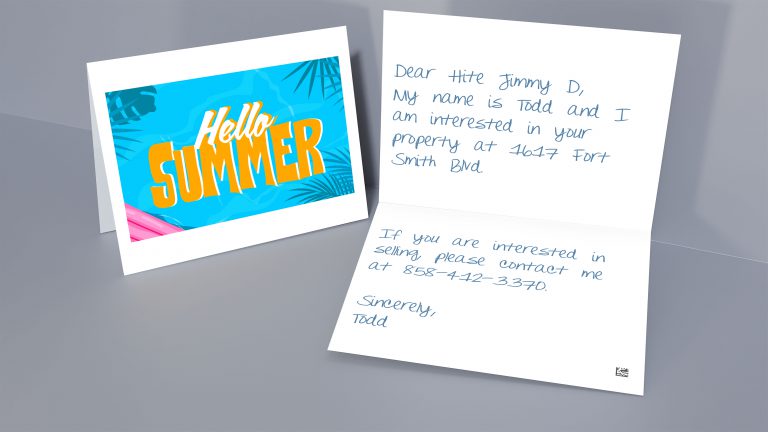 Hello
SUMMER
Dear Hite Jimmy D,
My name is Todd and I
am interested in your
property at 1617 Fort
Smith Blvd.
If you are interested in
selling, please contact me
at 858-412-3370.
Sincerely,
Todd